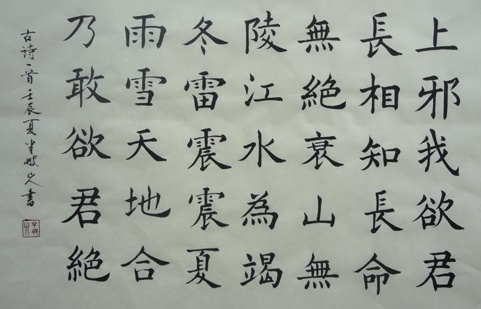 上邪我欲君
長相知長命
無絕衰山無
陵江水為竭
冬雷震震夏
雨雪天地合
乃敢欲君絕
古詩一首壬辰夏半坡人書